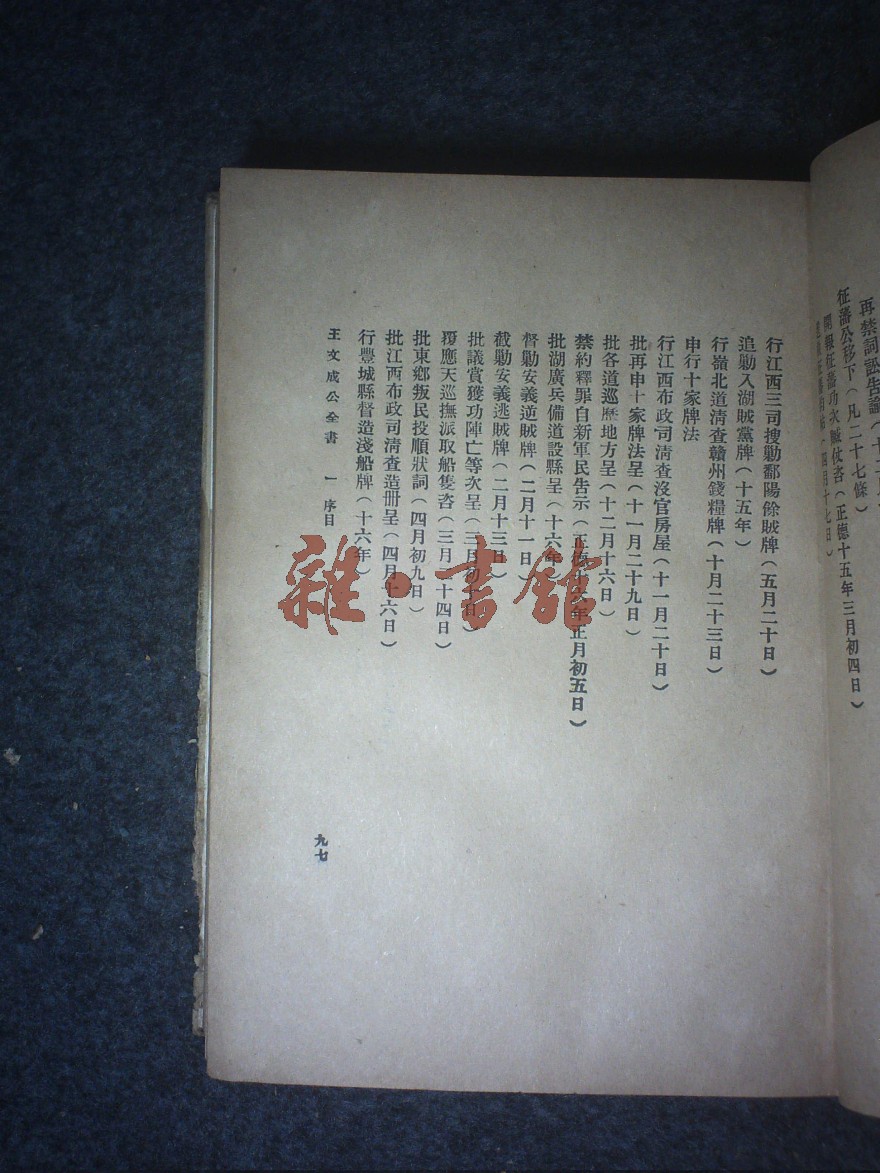 再禁詞訟告諭
征藩公移下（凡二十七條）
開報征藩功次贓仗咨（正德十五年三月初四日）
行江西三司搜勦鄱陽餘賊牌（五月二十日）
追勦入湖賊黨牌（十五年）
行嶺北道清查贛州錢糧牌（十月二十三日）
申行十家牌法
行江西布政司清查沒官房屋（十一月二十日）
批再申十家牌法呈（十一月二十九日）
批各道巡歷地方呈（十二月十六日）
禁約釋罪自新軍民告示（正德十六年正月初五日）
批湖廣兵備道設縣呈（十六年）
督勦安義逆賊牌（二月十一日）
截勦安義逃賊牌（二月十三日）
批議賞獲功陣亡等次呈（三月初十日）
覆應天巡撫派取船隻咨（三月十四日）
批東鄉叛民投順狀詞（四月初九日）
批江西布政司清查造冊呈（四月十六日）
行豐城縣督造淺船牌（十六年）
王文成公全書 一 序目
九七
雜·書館